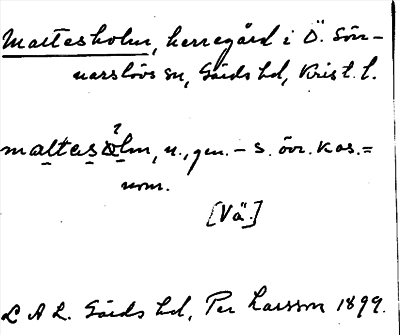 Maltesholm, herregård i Ö. Sön-
narslövs sn, Gärds hd, Krist. l.
maltesɷlm, n., gen. - s. övr. kas. =
nom.
[Vä.]
L A L. Gärds hd, Per Larsson 1899.